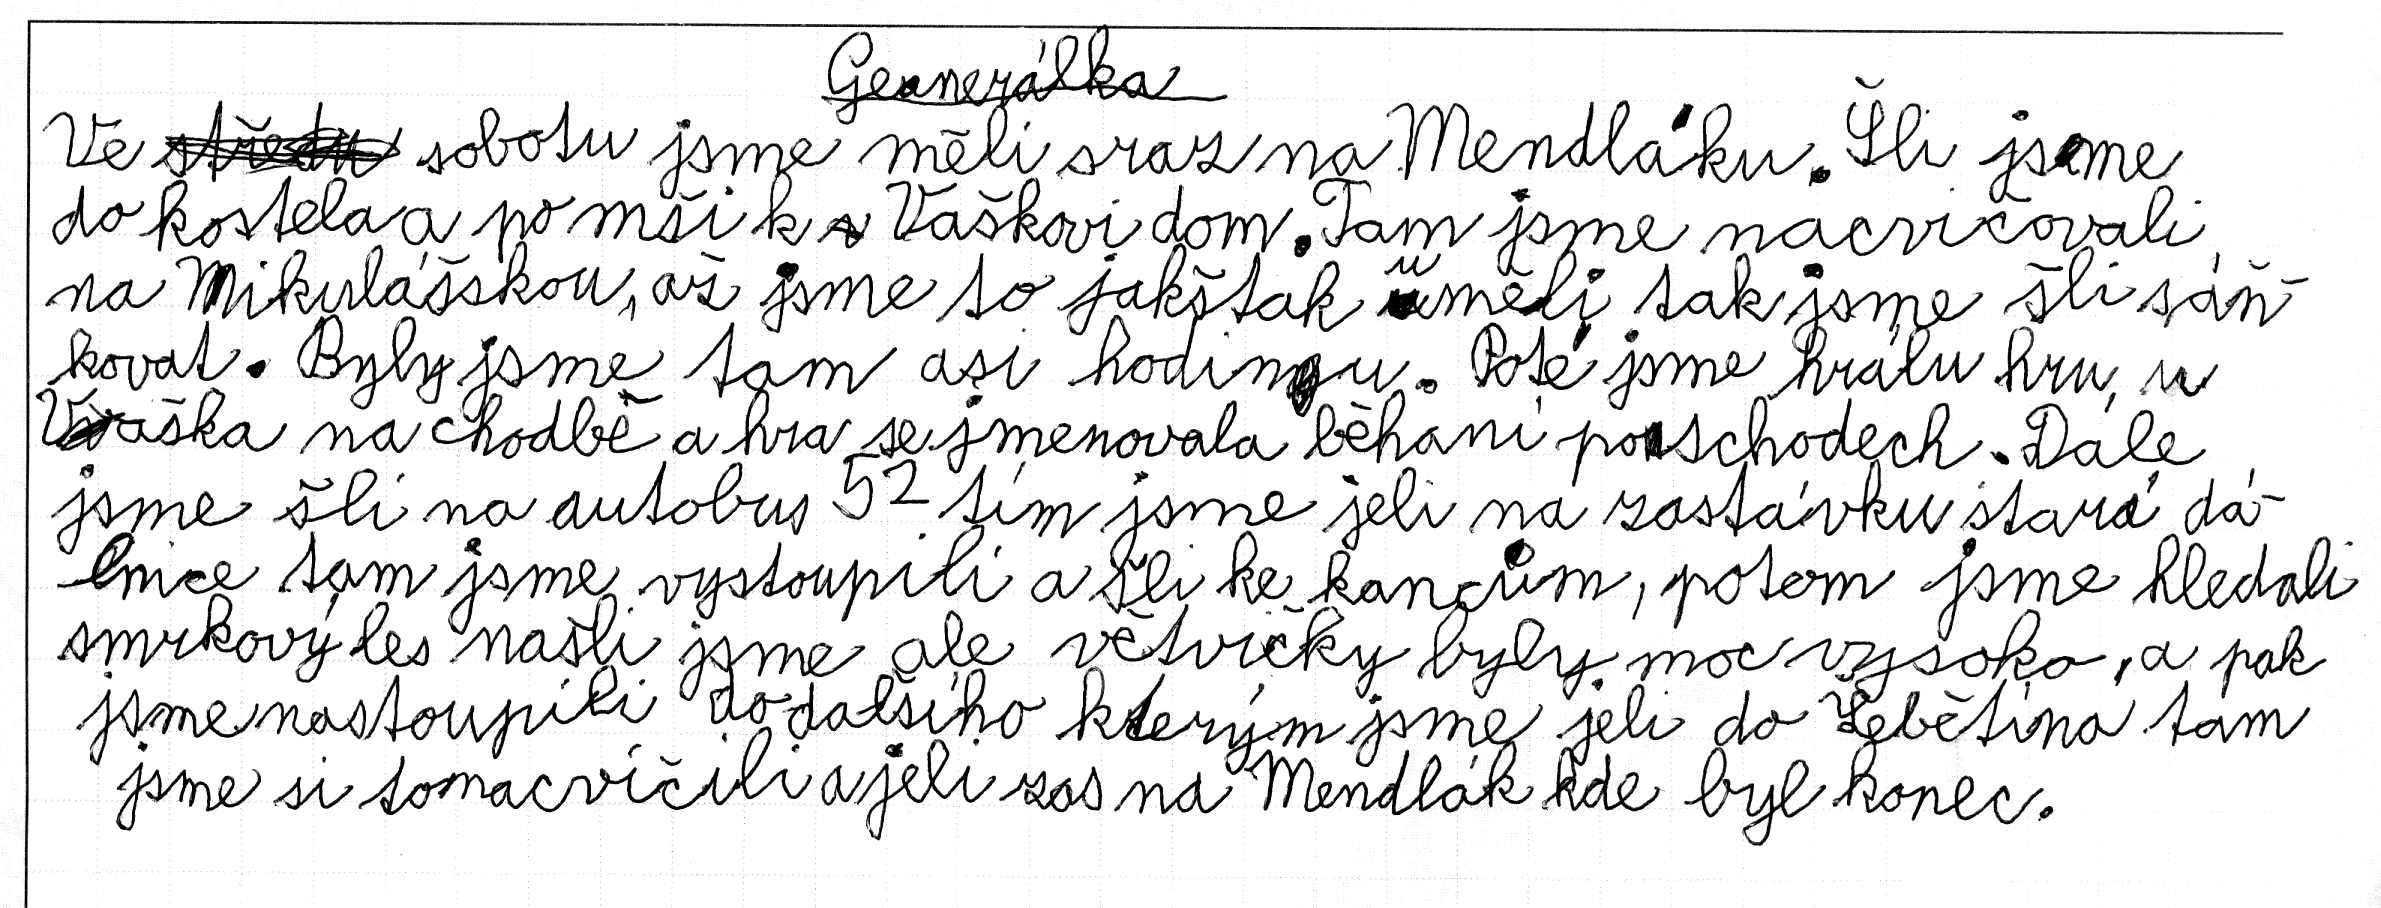 Generálka
Ve sobotu jsme měli sraz na Mendláku. Šli jsme
do kostela a po mši k Vaškovi dom. Tam jsme nacvičovali
na Mikulášskou, až jsme to jakštak uměli tak jsme šli sáň-
kovat. Byly jsme tam asi hodinu. Poté jsme hrálu hru, u
Vaška na chodbě a hra se jmenovala běhaní po schodech. Dále
jsme šli na autobus 52 tím jsme jeli na zastávku stará dá-
lnice tam jsme vystoupili a šli ke kancům, potom jsme hledali
smrkový les našli jsme ale větvičky byly moc vysoko, a pak
jsme nastoupili do dalšího kterým jsme jeli do Šebětína tam
jsme si to nacvičili a jeli zas na Mendlák kde byl konec.